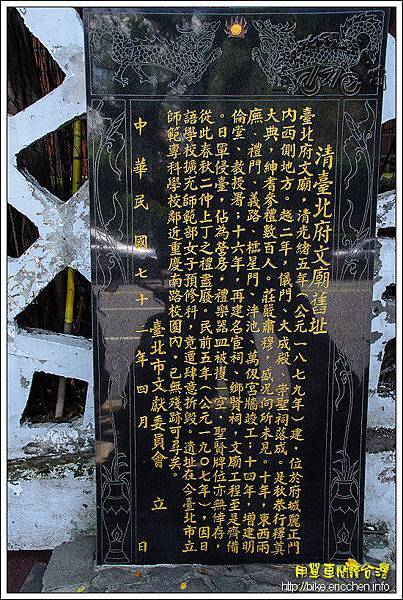 清臺北府文廟舊址
臺北府文廟,清光緒五年(公元一八七九年)建,位於府城麗正門
內西側地方。越二年,儀門、大成殿、崇聖祠落成。是秋恭行釋奠
大典,紳耆參禮數百人。莊嚴肅穆,感況向所未見。十年,東西兩
廡、禮門、義路、櫺星門、泮池、萬仞宮牆竣工;十四年,增建明
倫堂、教授署;十六年,再建名宦祠、鄉賢祠,文廟工程至是齊備
。日軍侵臺,佔為營房,禮樂器皿被搜一空,聖賢牌位亦無倖存,
從此春秋二仲上丁之禮盡廢。民前五年(公元一九0七年)因日
語學校擴充師範部女子預修科,竟遭肆意折毀。遺址在今臺北市立
師範專科學校鄰近重慶南路校園內,已無殘跡可尋矣。
臺北市文獻委員會 立
中華民國七十二年四月 日
用單車閱讀台灣
http://bike.ericchen.info